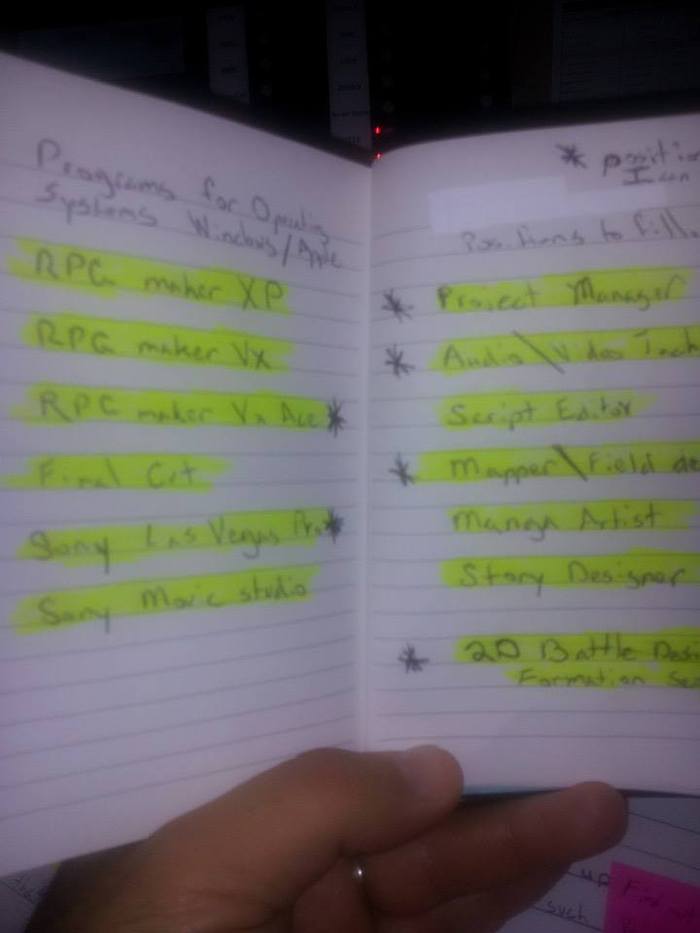 Programs for Operating
Systems Windows/Apple
RPG maker XP
RPG maker Vx
RPG maker Vx Ace *
Final Cut
Sony Las Vegas Pro *
Sony Movie studio
* positi
I can
Positions to fill.
* Project Manager
* Audio\Video Tech
Script Editor
* Mapper\Field de
Manga Artist
Story Designer
* 2D Battle Des
Formation Se
up
such
Find